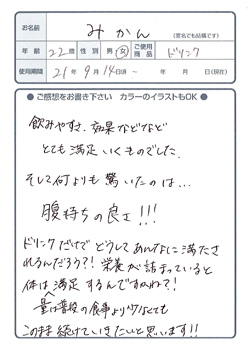 お名前 みかん (匿名でも結構です)
年齢 22歳 性別 男・女 ご使用商品 ドリンク
使用期間 21年 9月 14日頃 ～ 年 月 日 (現在)
● ご感想をお書き下さい カラーのイラストもOK ●
飲みやすさ、効果などなど
とても満足いくものでした。
そして何よりも驚いたのは…
腹持ちの良さ!!!
ドリンクだけでどうしてあんなに満たさ
れるんだろう?! 栄養が詰まっていると
体は満足するんですかね?!
量は普段の食事より少なくても
このまま続けていきたいと思います!!